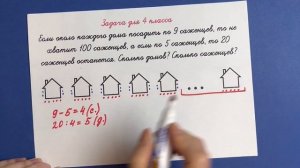 Задача для 4 класса
Если около каждого дома посадить по 9 саженцев, то не
хватит 100 саженцев, а если по 5 саженцев, то 20
саженцев останется. Сколько домов? Сколько саженцев?
9-5=4(с.)
20:4=5(д.)